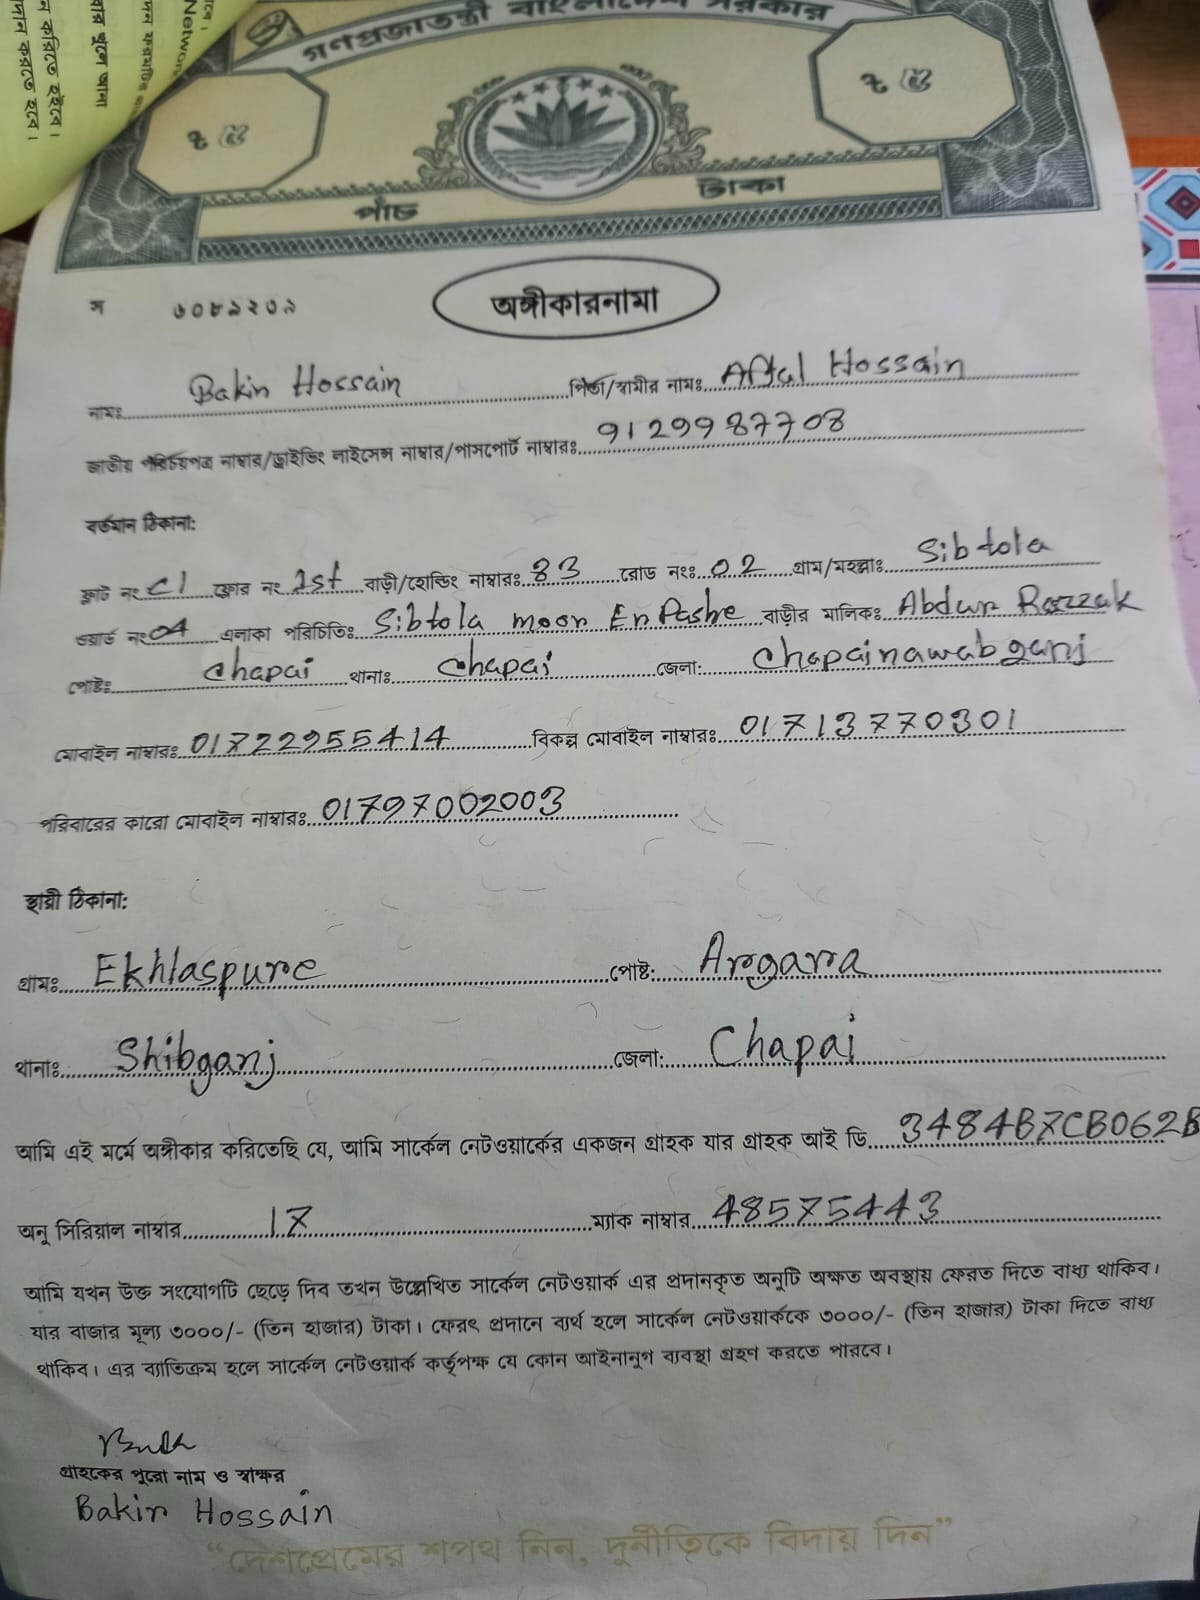 গণপ্রজাতন্ত্রী বাংলাদেশ সরকার
২ ২
পাঁচ টাকা
স ৬০৮৯২৩৯
অঙ্গীকারনামা
নামঃ Bakin Hossain পিতা/স্বামীর নামঃ Afjal Hossain
জাতীয় পরিচয়পত্র নাম্বার/ড্রাইভিং লাইসেন্স নাম্বার/পাসপোর্ট নাম্বারঃ 9129987708
বর্তমান ঠিকানা:
ফ্লাট নং C1 ফ্লোর নং 1st বাড়ী/হোল্ডিং নাম্বারঃ 83 রোড নংঃ 02 গ্রাম/মহল্লাঃ Sibtola
ওয়ার্ড নং 04 এলাকা পরিচিতিঃ Sibtola moor En Pashe বাড়ীর মালিকঃ Abdur Razzak
পোষ্টঃ Chapai থানাঃ Chapai জেলা: Chapainawabganj
মোবাইল নাম্বারঃ 01722955414 বিকল্প মোবাইল নাম্বারঃ 01713770301
পরিবারের কারো মোবাইল নাম্বারঃ 01797002003
স্থায়ী ঠিকানা:
গ্রামঃ Ekhlaspure পোষ্ট: Argara
থানাঃ Shibganj জেলা: Chapai
আমি এই মর্মে অঙ্গীকার করিতেছি যে, আমি সার্কেল নেটওয়ার্কের একজন গ্রাহক যার গ্রাহক আই ডি 3484B7CB062B
অনু সিরিয়াল নাম্বার 17 ম্যাক নাম্বার 48575443
আমি যখন উক্ত সংযোগটি ছেড়ে দিব তখন উল্লেখিত সার্কেল নেটওয়ার্ক এর প্রদানকৃত অনুটি অক্ষত অবস্থায় ফেরত দিতে বাধ্য থাকিব।
যার বাজার মূল্য ৩০০০/- (তিন হাজার) টাকা। ফেরৎ প্রদানে ব্যর্থ হলে সার্কেল নেটওয়ার্ককে ৩০০০/- (তিন হাজার) টাকা দিতে বাধ্য
থাকিব। এর ব্যাতিক্রম হলে সার্কেল নেটওয়ার্ক কর্তৃপক্ষ যে কোন আইনানুগ ব্যবস্থা গ্রহণ করতে পারবে।
গ্রাহকের পুরো নাম ও স্বাক্ষর
Bakin Hossain
“দেশপ্রেমের শপথ নিন, দুর্নীতিকে বিদায় দিন”